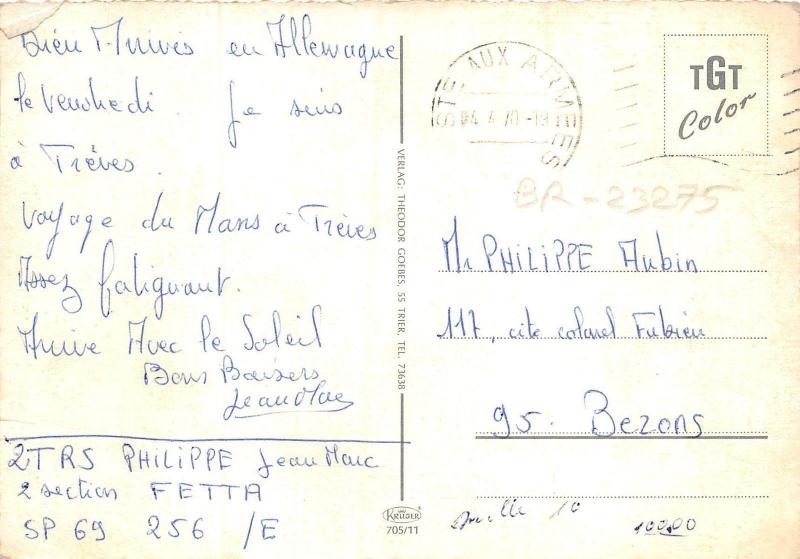 Bien Arrivés en Allemagne
le Vendredi. Je suis
à Trèves.
Voyage du Mans à Trèves
Assez fatiguant.
Arrivé Avec le Soleil
Bons Baisers
Jean Marc
2TRS PHILIPPE Jean Marc
2 section FETTA
SP 69 256 /E
VERLAG: THEODOR GOEBES, 55 TRIER, TEL. 73638
KRÜGER
705/11
STE AUX ARMEES
TGT
Color
BR-23275
Mr PHILIPPE Aubin
117, cité colonel Fabien
95. Bezons
10
100.00